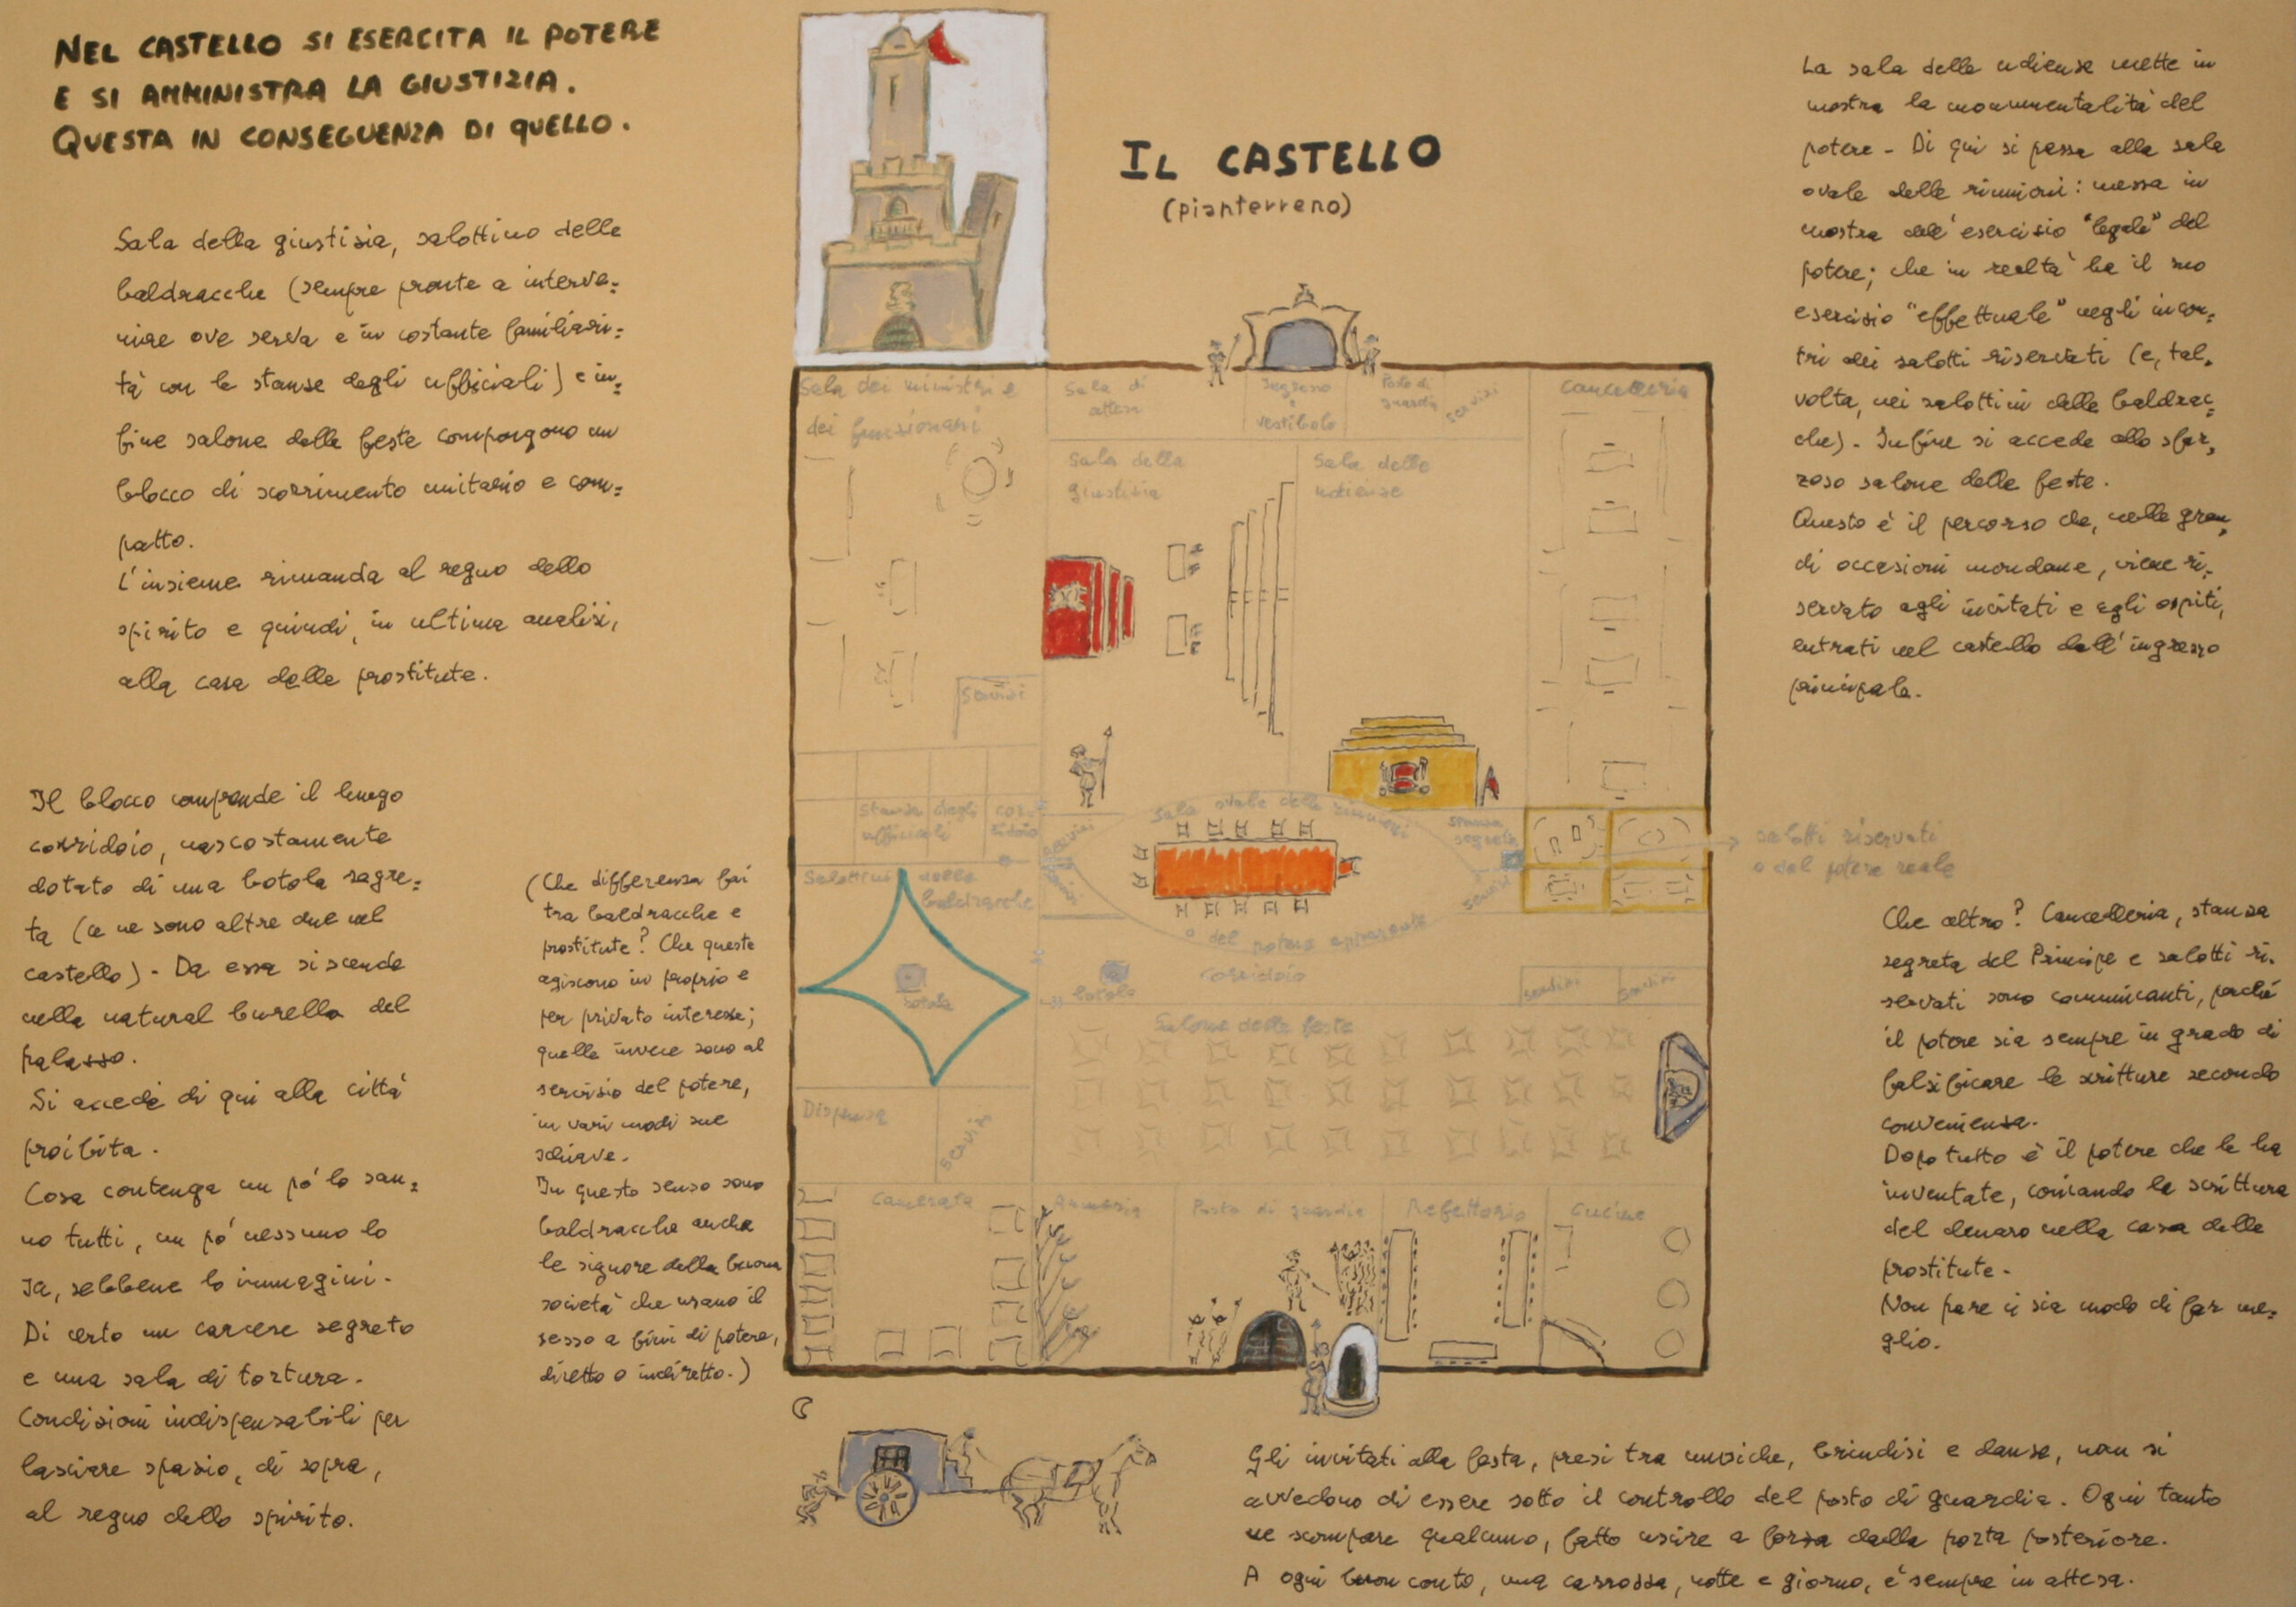 NEL CASTELLO SI ESERCITA IL POTERE
E SI AMMINISTRA LA GIUSTIZIA.
QUESTA IN CONSEGUENZA DI QUELLO.
Sala della giustizia, salottino delle
baldracche (sempre pronte a interve=
nire ove serva e in costante familiari=
tà con le stanze degli ufficiali) e in=
fine salone delle feste compongono un
blocco di scorrimento unitario e com=
patto.
L'insieme rimanda al regno dello
spirito e quindi, in ultima analisi,
alla casa delle prostitute.
Il blocco comprende il lungo
corridoio, nascostamente
dotato di una botola segre=
ta (ce ne sono altre due nel
castello). Da essa si scende
nella natural burella del
palazzo.
Si accede di qui alla città
proibita.
Cosa contenga un pó lo san=
no tutti, un pó nessuno lo
sa, sebbene lo immagini.
Di certo un carcere segreto
e una sala di tortura.
Condizioni indispensabili per
lasciare spazio, di sopra,
al regno dello spirito.
(Che differenza fai
tra baldracche e
prostitute? Che queste
agiscono in proprio e
per privato interesse;
quelle invece sono al
servizio del potere,
in vari modi sue
schiave.
In questo senso sono
baldracche anche
le signore della buona
società che usano il
sesso a fini di potere,
diretto o indiretto.)
IL CASTELLO
(pianterreno)
Sala dei ministri e
dei funzionari
Sala di
attesa
Ingresso
e
vestibolo
Posto di
guardia
servizi
Cancelleria
Sala della
giustizia
Sala delle
udienze
Servizi
Stanze degli
ufficiali
cor=
ridoio
servizi
Sala ovale delle riunioni
o del potere apparente
stanza
segreta
servizi
salotti riservati
o del potere reale
Salottini delle
baldracche
botola
botola
Corridoio
servizi
servizi
Salone delle feste
Dispensa
servizi
Camerata
Armeria
Posto di guardia
Refettorio
Cucine
La sala delle udienze mette in
mostra la monumentalità del
potere. Di qui si passa alla sala
ovale delle riunioni: messa in
mostra dell'esercizio "legale" del
potere; che in realtà ha il suo
esercizio "effettuale" negli incon=
tri dei salotti riservati (e, tal=
volta, nei salottini delle baldrac=
che). Infine si accede allo sfar=
zoso salone delle feste.
Questo è il percorso che, nelle gran=
di occasioni mondane, viene ri=
servato agli invitati e agli ospiti,
entrati nel castello dall'ingresso
principale.
Che altro? Cancelleria, stanza
segreta del Principe e salotti ri=
servati sono comunicanti, perché
il potere sia sempre in grado di
falsificare le scritture secondo
convenienza.
Dopo tutto è il potere che le ha
inventate, coniando la scrittura
del denaro nella casa delle
prostitute.
Non pare ci sia modo di far me=
glio.
Gli invitati alla festa, presi tra musiche, brindisi e danze, non si
avvedono di essere sotto il controllo del posto di guardia. Ogni tanto
ne scompare qualcuno, fatto uscire a forza dalla porta posteriore.
A ogni buon conto, una carrozza, notte e giorno, è sempre in attesa.